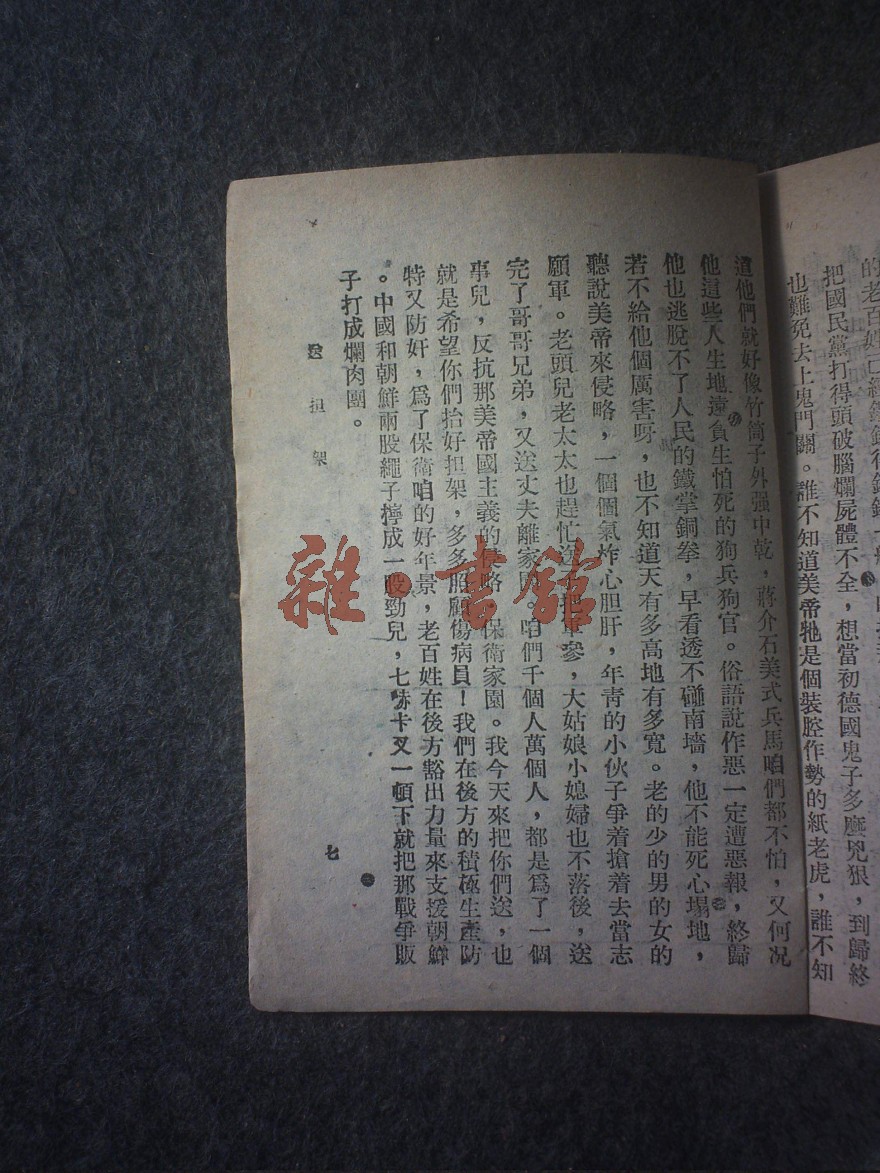 的老百姓已經
把國民黨打得頭破腦爛屍體不全，想當初德國鬼子多麽兇狠，到歸終
也難免去上鬼門關。誰不知道美帝牠是個裝腔作勢的紙老虎，誰不知
道他們就好像竹筒子外强中乾，蔣介石美式兵馬咱們都不怕，又何况
他這些人生地遠貪生怕死的狗兵狗官。俗語說作惡一定遭惡報，終歸
他也逃脫不了人民的鐵掌銅拳，早看透不碰南墻，他不能死心塌地，
若不給他個厲害呀，也不知道天有多高地有多寬。老的少的男的女的
聽說美帝來侵略，一個個氣炸心胆肝，年靑的小伙子爭着搶着去當志
願軍。老頭兒老太太也趕忙送 把軍參，大姑娘小媳婦也不落後，送
完了哥哥兄弟，又送丈夫離家園。咱們千個人萬個人，都是爲了一個
事兒，反抗那美帝國主義的侵略，保衛家園。我今天來把你們送，也
就是希望你們抬好担架，多多照顧傷病員！我們在後方的積極生產防
特又防奸，爲了保衛咱的好年景，老百姓在後方豁出力量來支援朝鮮
。中國和朝鮮兩股繩子擰成一股勁兒，七哧卡叉一頓下就把那戰爭販
子打成爛肉團。
送担架
七
雜·書館